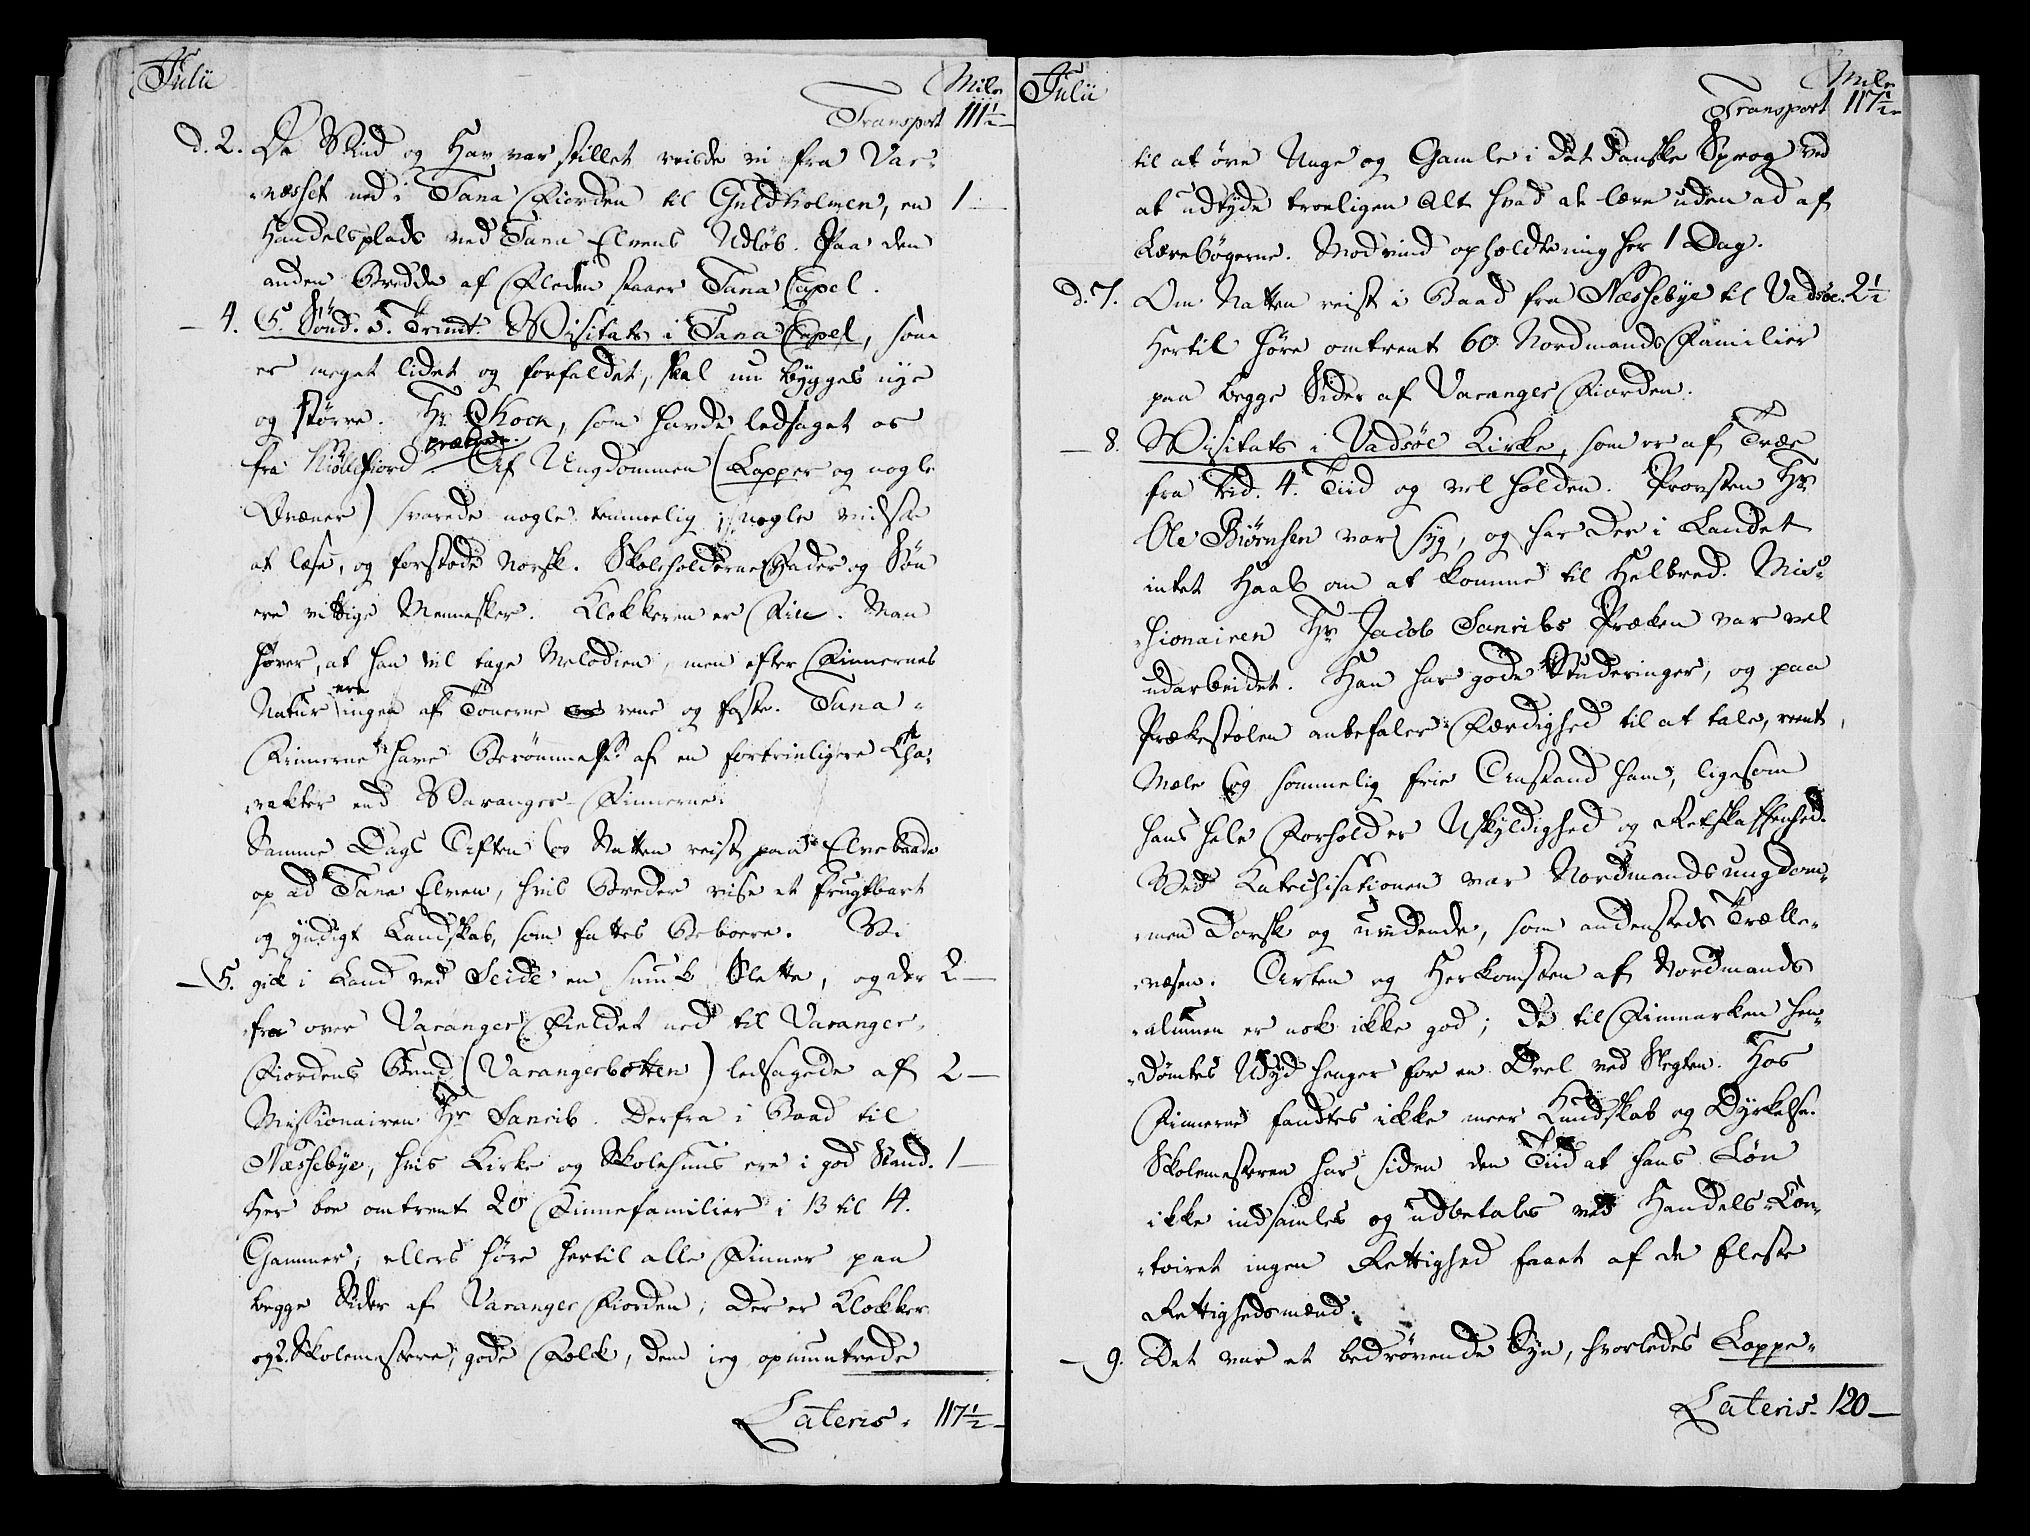 Julii
Mile
Transport 111½
d. 2. Da Vind og Hav var stillet reiste vi fra Var-
næsset ned i Tana Fiorden til Guldholmen, en 1
Handelsplads ved Tana Elvens Udløb. Paa den
anden Bredde af Floden staaer Tana Capel.
4. 5. Sønd. e. Trinit. Visitats i Tana Capel, som
er meget lidet og forfaldet, skal nu bygges nye
og større. Hr. Kock, som havde ledsaget os
prækede.
fra Kiøllefiord Af Ungdommen (Lapper og nogle
Qvæner) svarede nogle temmelig, nogle vidste
at læse, og forstode Norsk. Skoleholderne Fader og Søn
ere vittige Mennesker. Klokkeren er Fin. Man
hører, at han vil tage Melodien, men efter Finnernes
ere
Natur ingen af Tonerne rene og faste. Tana-
Finnerne have Berømmelse af en fortrinligere Cha-
rakter end Varanger-Finnerne.
Samme Dags Aften og Natten reist paa Elvebaade
op ad Tana Elven, hvis Breder vise et frugtbart
og yndigt Landskab, som fattes Beboere. Vi
5. gick i Land ved Seide en smuk Slette, og der 2
fra over Varanger Fieldet ned til Varanger-
Fiordens Bund (Varangerbotten) ledsagede af 2
Missionairen Hr. Sanrib. Derfra i Baad til
Næssebye, hvis Kirke og Skolehuus ere i god Stand. 1
Her boe omtrent 20 Finnefamilier i 13 til 14
Gammer, ellers høre hertil alle Finner paa
begge Sider af Varanger Fiorden; Der er Klokker
og 2. Skolemestere, gode Folk, dem jeg opmuntrede
Lateris. 117½
Julii
Mile
Transport 117½
til at øve Unge og Gamle i det danske Sprog ved
at udtyde troeligen Alt hvad de lære uden ad af
Lærebøgerne. Modvind opholdte mig her 1 Dag.
d. 7. Om Natten reist i Baad fra Næssebye til Vadsøe. 2½
Hertil høre omtrent 60 NordmandsFamilier
paa begge Sider af Varanger Fiorden.
8. Visitats i Vadsøe Kirke, som er af Træe
fra Frid. 4. Tiid og vel holden. Provsten Hr.
Ole Biørnsen var syg, og har der i Landet
intet Haab om at komme til Helbred. Mis-
sionairen Hr. Jacob Sanribs Præken var vel
udarbeidet. Han har gode Studeringer, og paa
Prækestolen anbefaler Færdighed til at tale, reent
Mæle og sømmelig frie Anstand ham, ligesom
hans hele Forhold er Uskyldighed og Retskaffenhed.
Ved Katechisationen var Nordmandsungdom-
men Dorsk og uvidende, som andensteds Trælle-
væsen. Arten og Herkomsten af Nordmands
almuen er nok ikke god; De til Finmarken hen-
dømtes Udyd henger for en Deel ved Slegten. Hos
Finnerne fandtes ikke meer Kundskab og Dyrkelse.
Skolemesteren har siden den Tiid at hans Løn
ikke indsamles og udbetales ved Handels-Con-
toiret ingen Rettighed faaet af de fleste
Rettighedsmænd.
9. Det var et bedrøvende Syn, hvorledes Lappe-
Lateris. 120